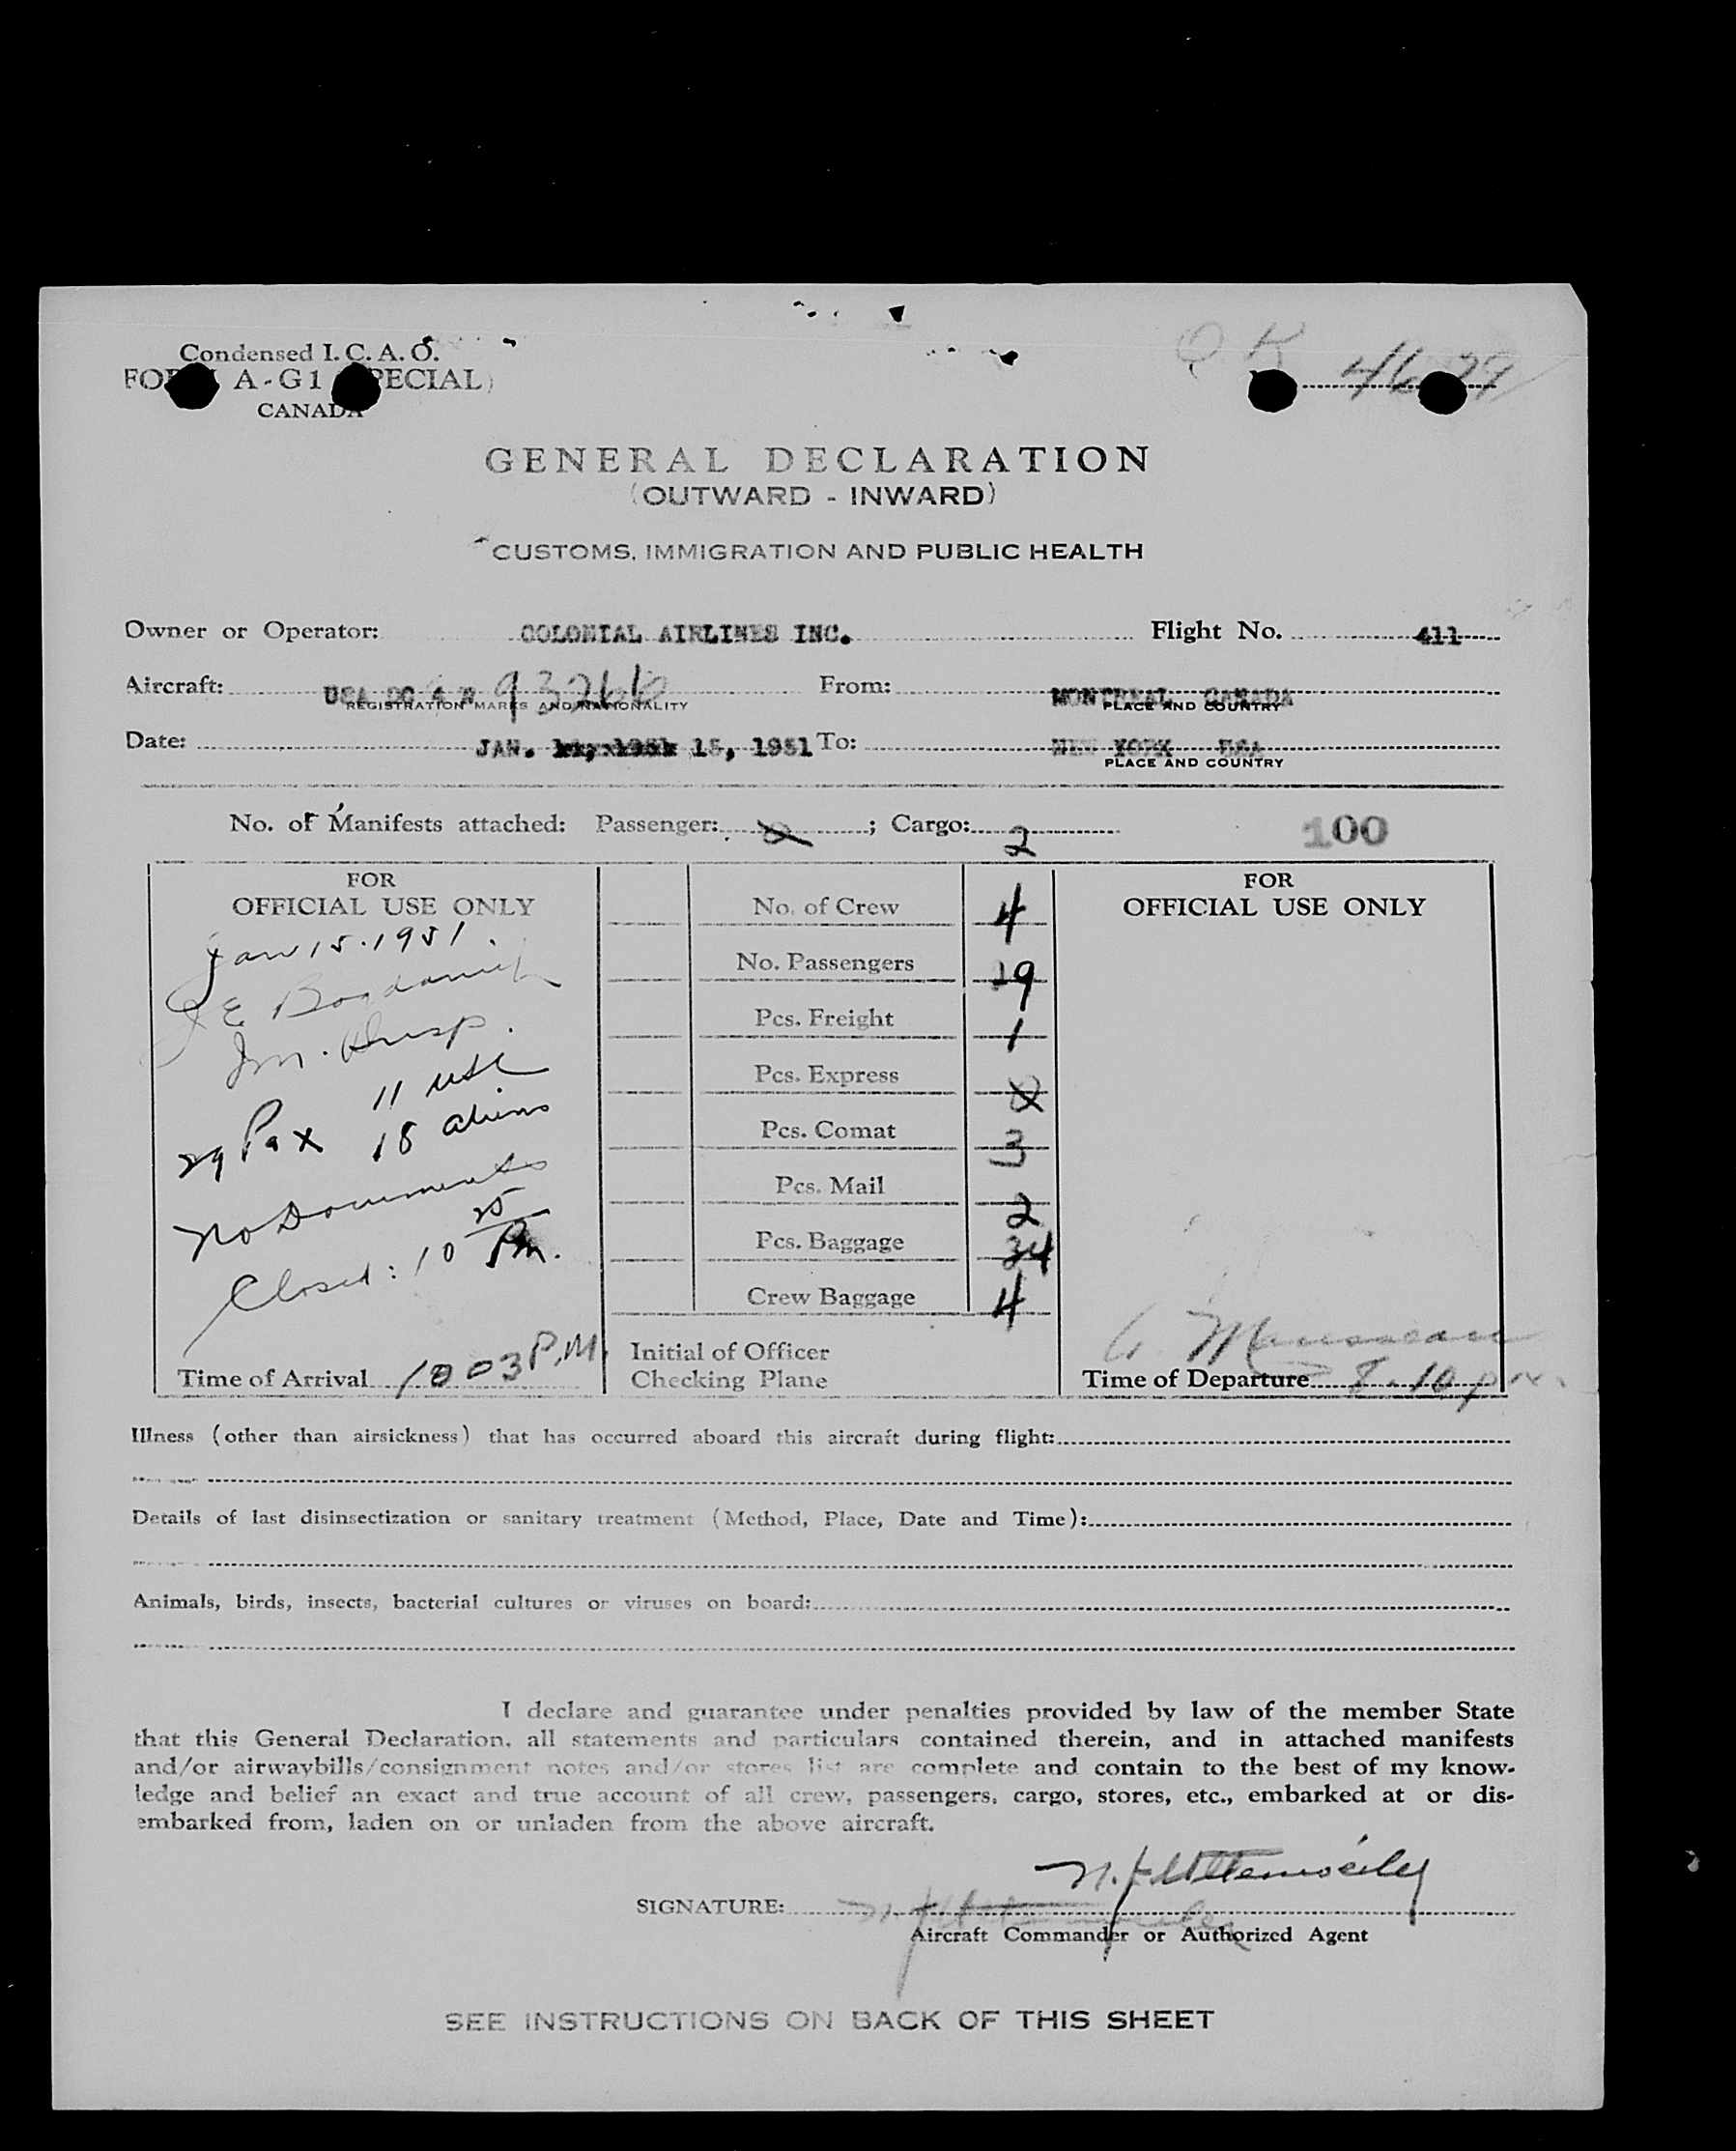 Condensed I. C. A. O.
A-G1
CANADA
OK
GENERAL DECLARATION
(OUTWARD - INWARD)
CUSTOMS, IMMIGRATION AND PUBLIC HEALTH
Owner or Operator: COLONIAL AIRLINES INC. Flight No. 411
Aircraft: USA DC 4 N 93266 From: MONTREAL CANADA
REGISTRATION MARKS AND NATIONALITY PLACE AND COUNTRY
Date: JAN. 15, 1951 To: NEW YORK USA
PLACE AND COUNTRY
No. of Manifests attached: Passenger: ; Cargo: 2
100
FOR
OFFICIAL USE ONLY
Jan 15. 1951.
11 USC
29 Pax 18 aliens
No Documents
Closed: 10 25 Pm.
Time of Arrival 10 03 P.M.
No. of Crew 4
No. Passengers 29
Pcs. Freight 1
Pcs. Express
Pcs. Comat 3
Pcs. Mail 2
Pcs. Baggage 34
Crew Baggage 4
Initial of Officer
Checking Plane
FOR
OFFICIAL USE ONLY
Time of Departure 8.10 pm.
Illness (other than airsickness) that has occurred aboard this aircraft during flight:
Details of last disinsectization or sanitary treatment (Method, Place, Date and Time):
Animals, birds, insects, bacterial cultures or viruses on board:
I declare and guarantee under penalties provided by law of the member State
that this General Declaration, all statements and particulars contained therein, and in attached manifests
and/or airwaybills/consignment notes and/or stores list are complete and contain to the best of my know-
ledge and belief an exact and true account of all crew, passengers, cargo, stores, etc., embarked at or dis-
embarked from, laden on or unladen from the above aircraft.
SIGNATURE:
Aircraft Commander or Authorized Agent
SEE INSTRUCTIONS ON BACK OF THIS SHEET